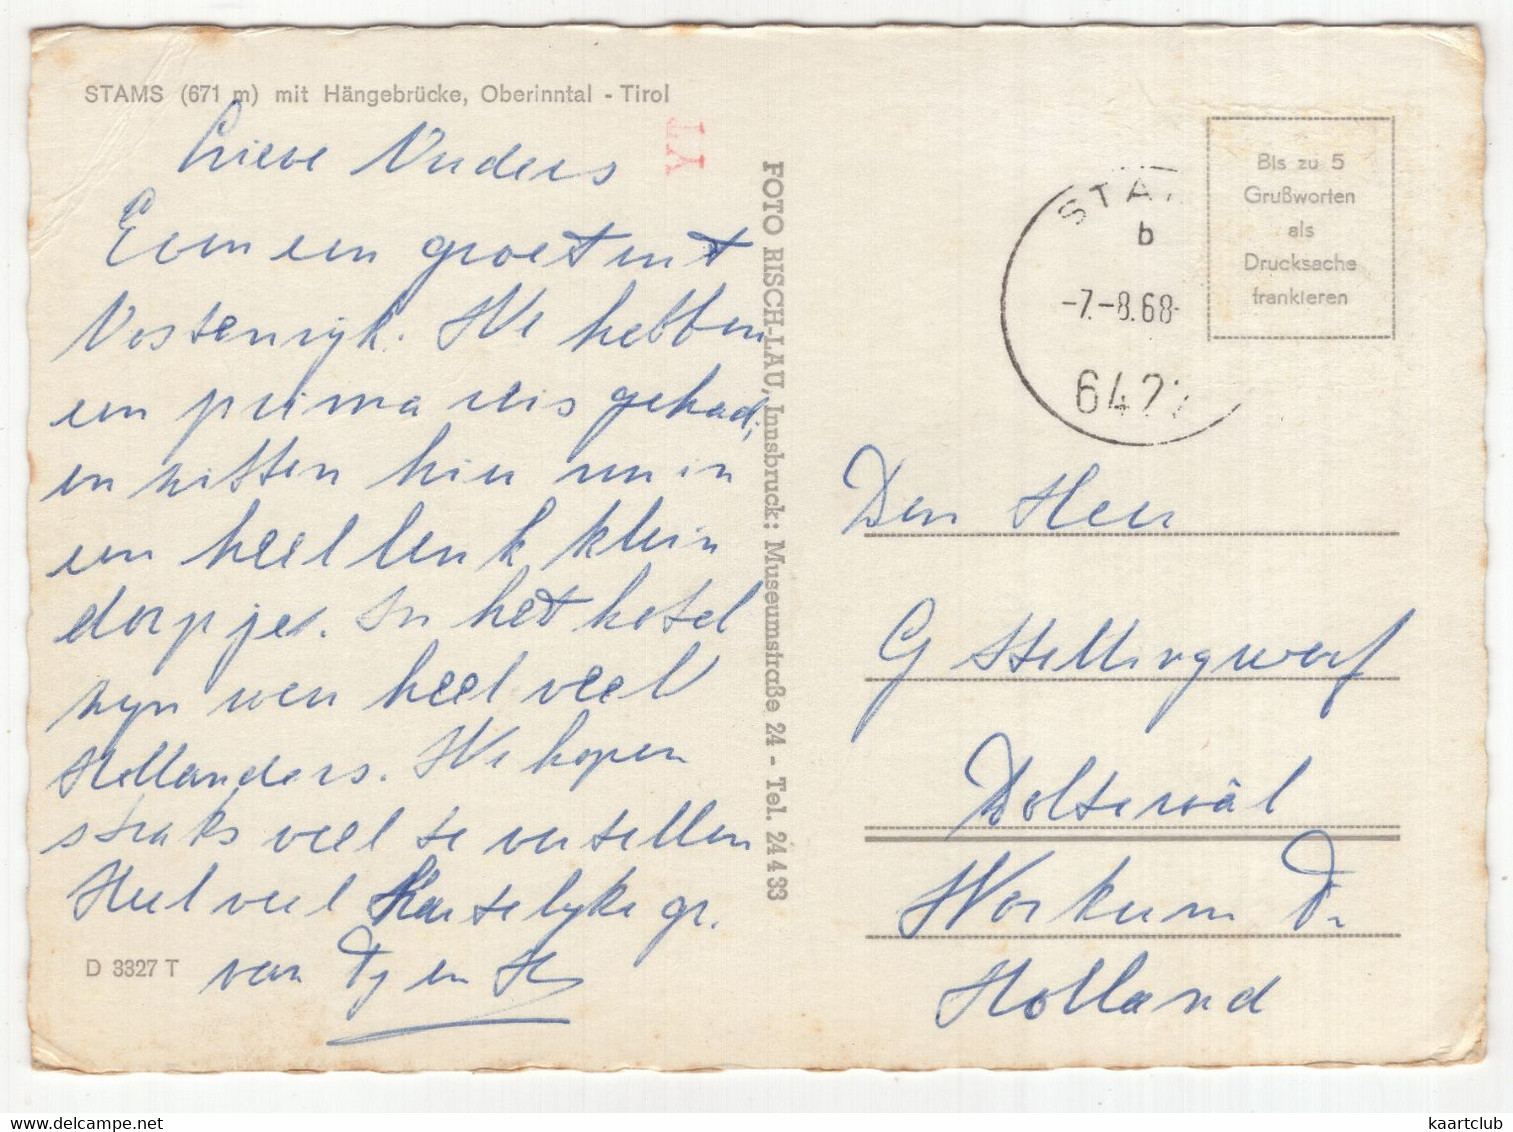 STAMS (671 m) mit Hängebrücke, Oberinntal - Tirol
Lieve Ouders
Even een groet uit
Oostenrijk. We hebben
een prima reis gehad,
en zitten hier nu in
een heel leuk klein
dorpje. In het hotel
zijn weer heel veel
Hollanders. We hopen
straks veel te vertellen
Heel veel Hartelijke gr.
van Tj en H
D 3327 T
YT
FOTO RISCH-LAU, Innsbruck: Museumstraße 24 - Tel. 24 4 33
STA
b
-7.-8.68-
642
Bis zu 5
Grußworten
als
Drucksache
frankieren
Den Heer
G Stellingwerf
Dolterwâl
Workum Fr
Holland
kaartclub